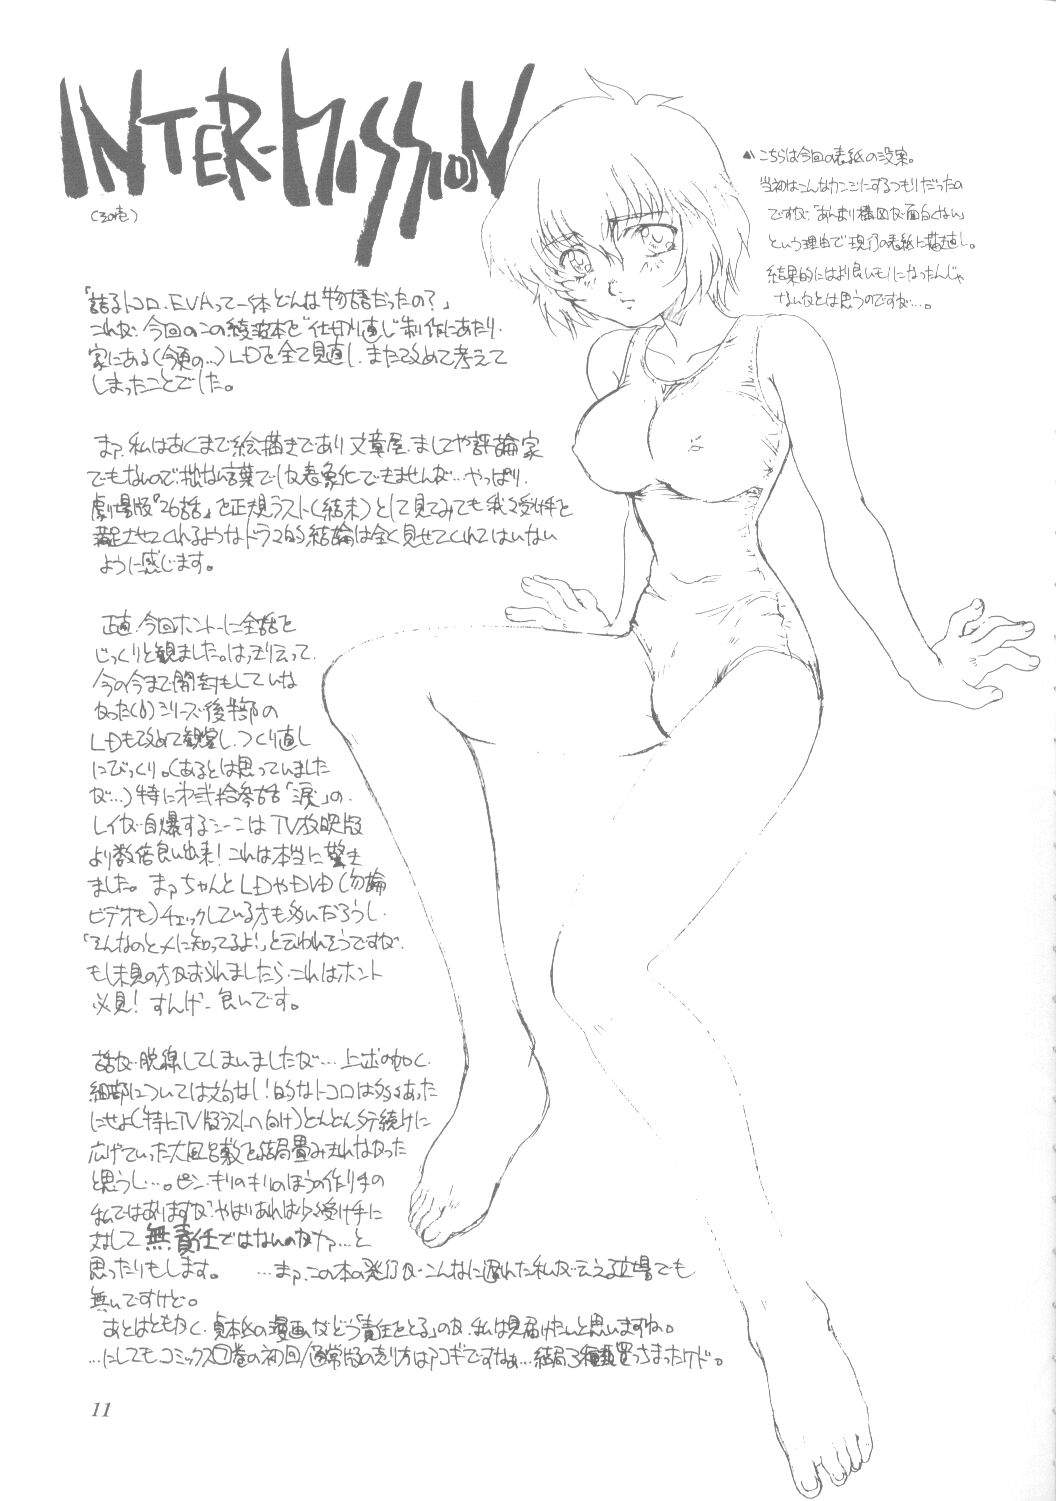 INTER-MISSION
(その壱)
こちらは今回の表紙の没案。
当初はこんなカンジにするつもりだったの
ですが「あんまり構図が面白くない」
という理由で現行の表紙に描き直し。
結果的には割と良いモノになったんじゃ
ないかなとは思うのですが…。
「詰るトコロ、EVAって一体どんな物語だったの?」
これが、今回のこの綾波本を"仕切り直し"制作にあたり、
家にある(今更の…)LDを全て見直し、また改めて考えて
しまったことでした。
まァ、私はあくまで絵描きであり文章屋、ましてや評論家
でもないので、拙ない言葉でしか表象化できませんが…やっぱり、
劇場版『26話』を正規ラスト(結末)として見てみても我々受け手を
満足させてくれるようなドラマ的結論は全く見せてくれてはいない
ように感じます。
正直、今回ホントーに全話を
じっくりと観ました。はっきり言って、
今の今まで開封もしていな
かった(!)シリーズ後半部の
LDも改めて観賞し、つくり直し
にびっくり。(あるとは思っていました
が…)特に第弐拾参話「涙」の、
レイが自爆するシーンはTV放映版
より数倍良い出来!これは本当に驚き
ました。まァちゃんとLDやDVD(勿論
ビデオも)チェックしている方も多いだろうし、
「そんなのとっくに知ってるよ!」と云われそうですが、
もし未見の方がおられましたら、これはホント
必見!すんげー良いです。
話が脱線してしまいましたが…上述の如く、
細部については文句なし!的なトコロは多々あった
にせよ(特にTV版ラストへ向け)どんどん広げ続けに
広げていった大風呂敷を結局畳みきれなかった
と思うし…。ピン・キリのキリのほうの作り手の
私ではありますが、やはりあれは少々受け手に
対して無責任ではないのかァ…と
思ったりもします。　…まァ、この本の発行が、こんなに遅れた私が云える立場でも
無いですけど。
あとはともかく、貞本氏の漫画がどう「責任をとる」のか、私は見届けたいと思いますね。
…にしてもコミックス⑦巻の初回/通常版の売り方はアコギですなぁ…結局3種買っちまったケド。
11